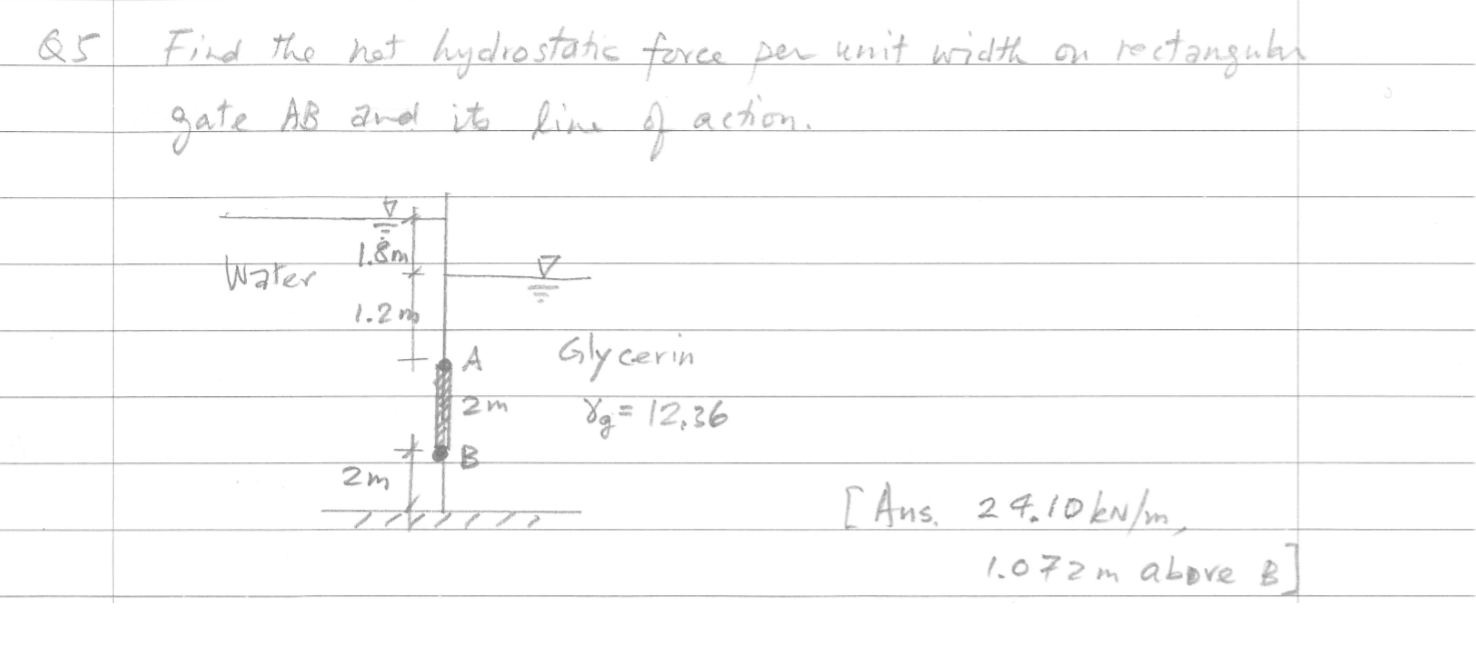 Q5 Find the net hydrostatic force per unit width on rectangular
gate AB and its line of action.
1.8m
Water
1.2m
A Glycerin
2m γg = 12.36
B
2m
[Ans. 24.10 kN/m,
1.072m above B]